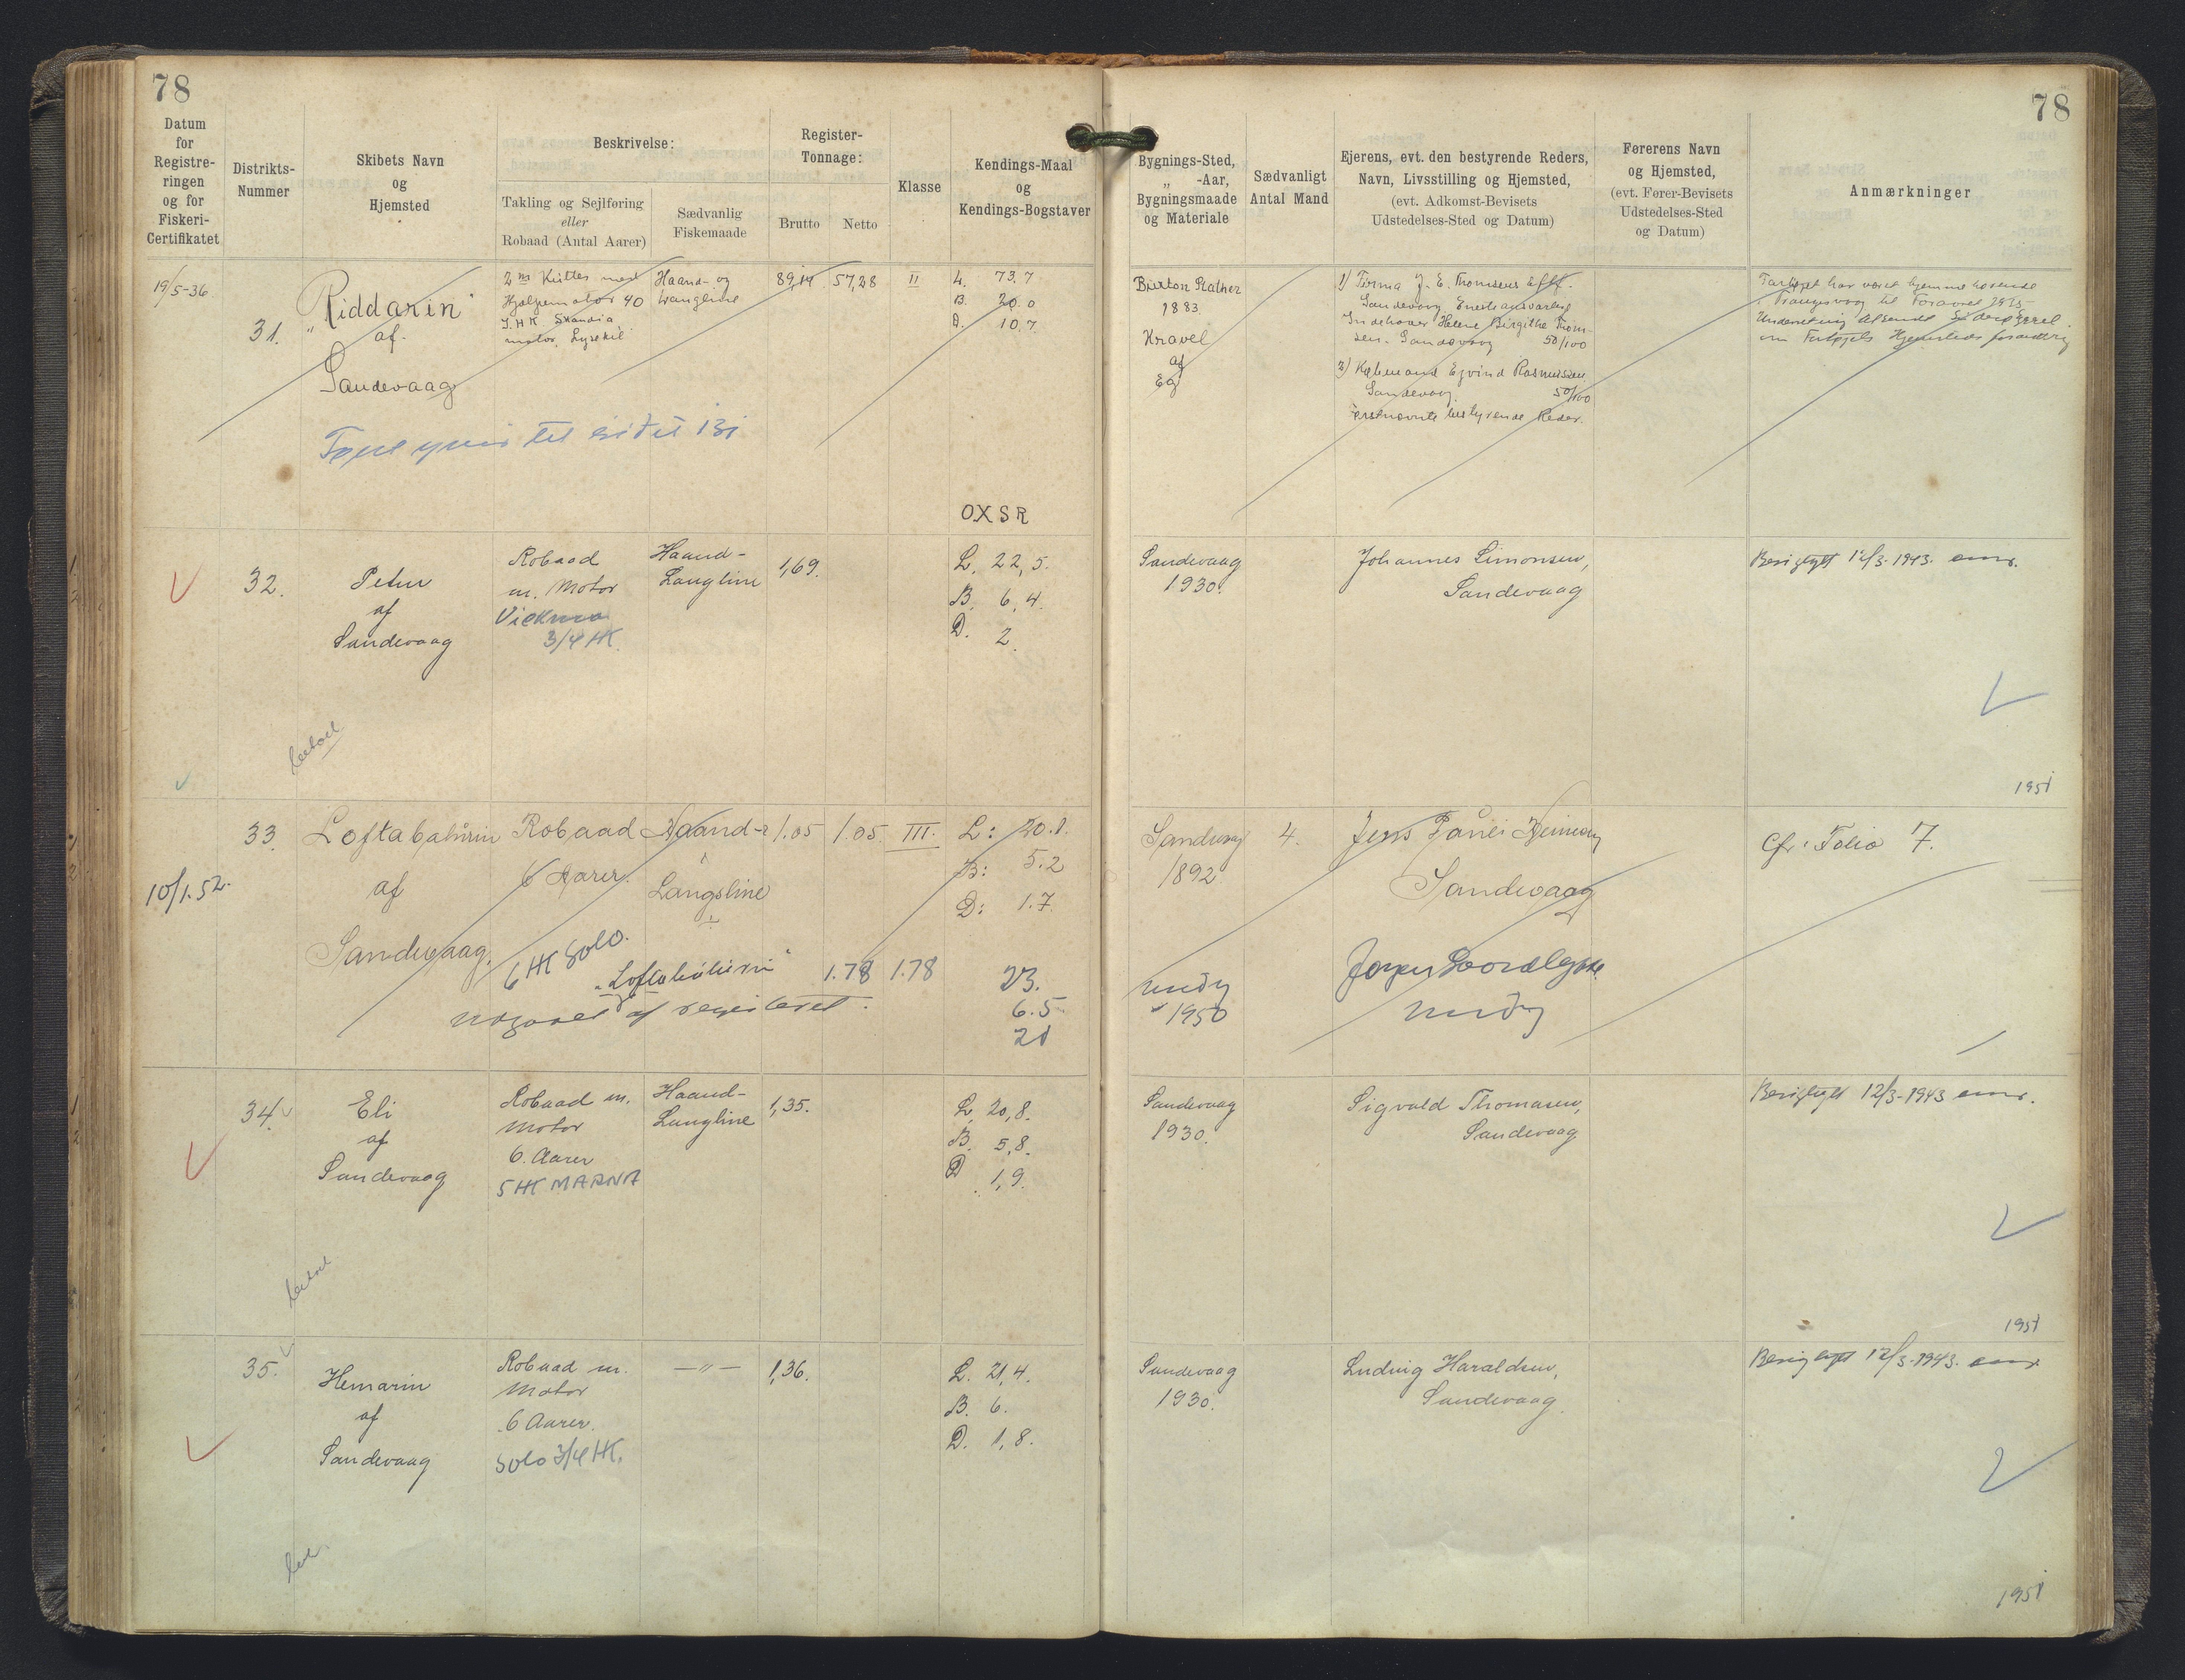 78
Datum
for
Registre-
ringen
og for
Fiskeri-
Certifikatet
Distrikts-
Nummer
Skibets Navn
og
Hjemsted
Beskrivelse:
Takling og Sejlføring
eller
Robaad (Antal Aarer)
Sædvanlig
Fiskemaade
Register-
Tonnage:
Brutto
Netto
Klasse
Kendings-Maal
og
Kendings-Bogstaver
19/5-36
31.
"Riddarin"
af.
Sandevaag
2 m Kutter med
Hjælpemotor 40
I.H.K. Skandia
motor, Lysekil
Haand- og
Langline
89,14
57,28
II
L. 73.7
B. 20.0
D. 10.7
til 131
OXSR
32.
Petur
af
Sandevaag
Robaad
m. Motor
3/4 HK.
Haand-
Langline
1,69.
L. 22,5.
B. 6,4.
D. 2.
33.
10/1.52.
Loftabaturin
af
Sandevaag.
Robaad
6 Aarer.
6 HK Solo.
Haand-
Langsline
1.05
1.05
III.
L: 20.1.
B: 5.2
D: 1.7.
1.78
1.78
23.
6.5
21
af registeret.
34.
Eli
af
Sandevaag
Robaad m.
Motor
6. Aarer
5 HK MARNA
Haand-
Langline
1,35.
L. 20,8.
B. 5,8.
D. 1,9.
35.
Hemarin
af
Sandevaag
Robaad m.
Motor
6 Aarer.
Solo 3/4 HK.
—"—
1,36.
L. 21,4.
B. 6.
D. 1,8.
78
Bygnings-Sted,
„ -Aar,
Bygningsmaade
og Materiale
Sædvanligt
Antal Mand
Ejerens, evt. den bestyrende Reders,
Navn, Livsstilling og Hjemsted,
(evt. Adkomst-Bevisets
Udstedelses-Sted og Datum)
Førerens Navn
og Hjemsted,
(evt. Fører-Bevisets
Udstedelses-Sted
og Datum)
Anmærkninger
Burton Stather
1883.
Kravel
af
Eg
1) Firma J. E. Thomsens Eftf.
Sandevaag Eneste ansvarlige
Indehaver Helene Birgithe Thom-
sen. Sandevaag 50/100
2) Købmand Ejvind Rasmussen
Sandevaag. 50/100
Førstnævnte bestyrende Reder.
Fartøjet har været hjemmehørende
i Trangisvaag til Foraaret 1935-
om Fartøjets Hjemsteds forandring
Sandevaag
1930.
Johannes Simonsen,
Sandevaag
Berigtiget 12/3-1943.
1951
Sandevaag
1892
4.
Jens Pauli Heinesen
Sandevaag
Cfr. Folio 7.
1950
Sandevaag
1930.
Sigvald Thomasen,
Sandevaag
Berigtiget 12/3-1943
1951
Sandevaag
1930.
Ludvig Haraldsen,
Sandevaag.
Berigtiget 12/3-1943.
1951